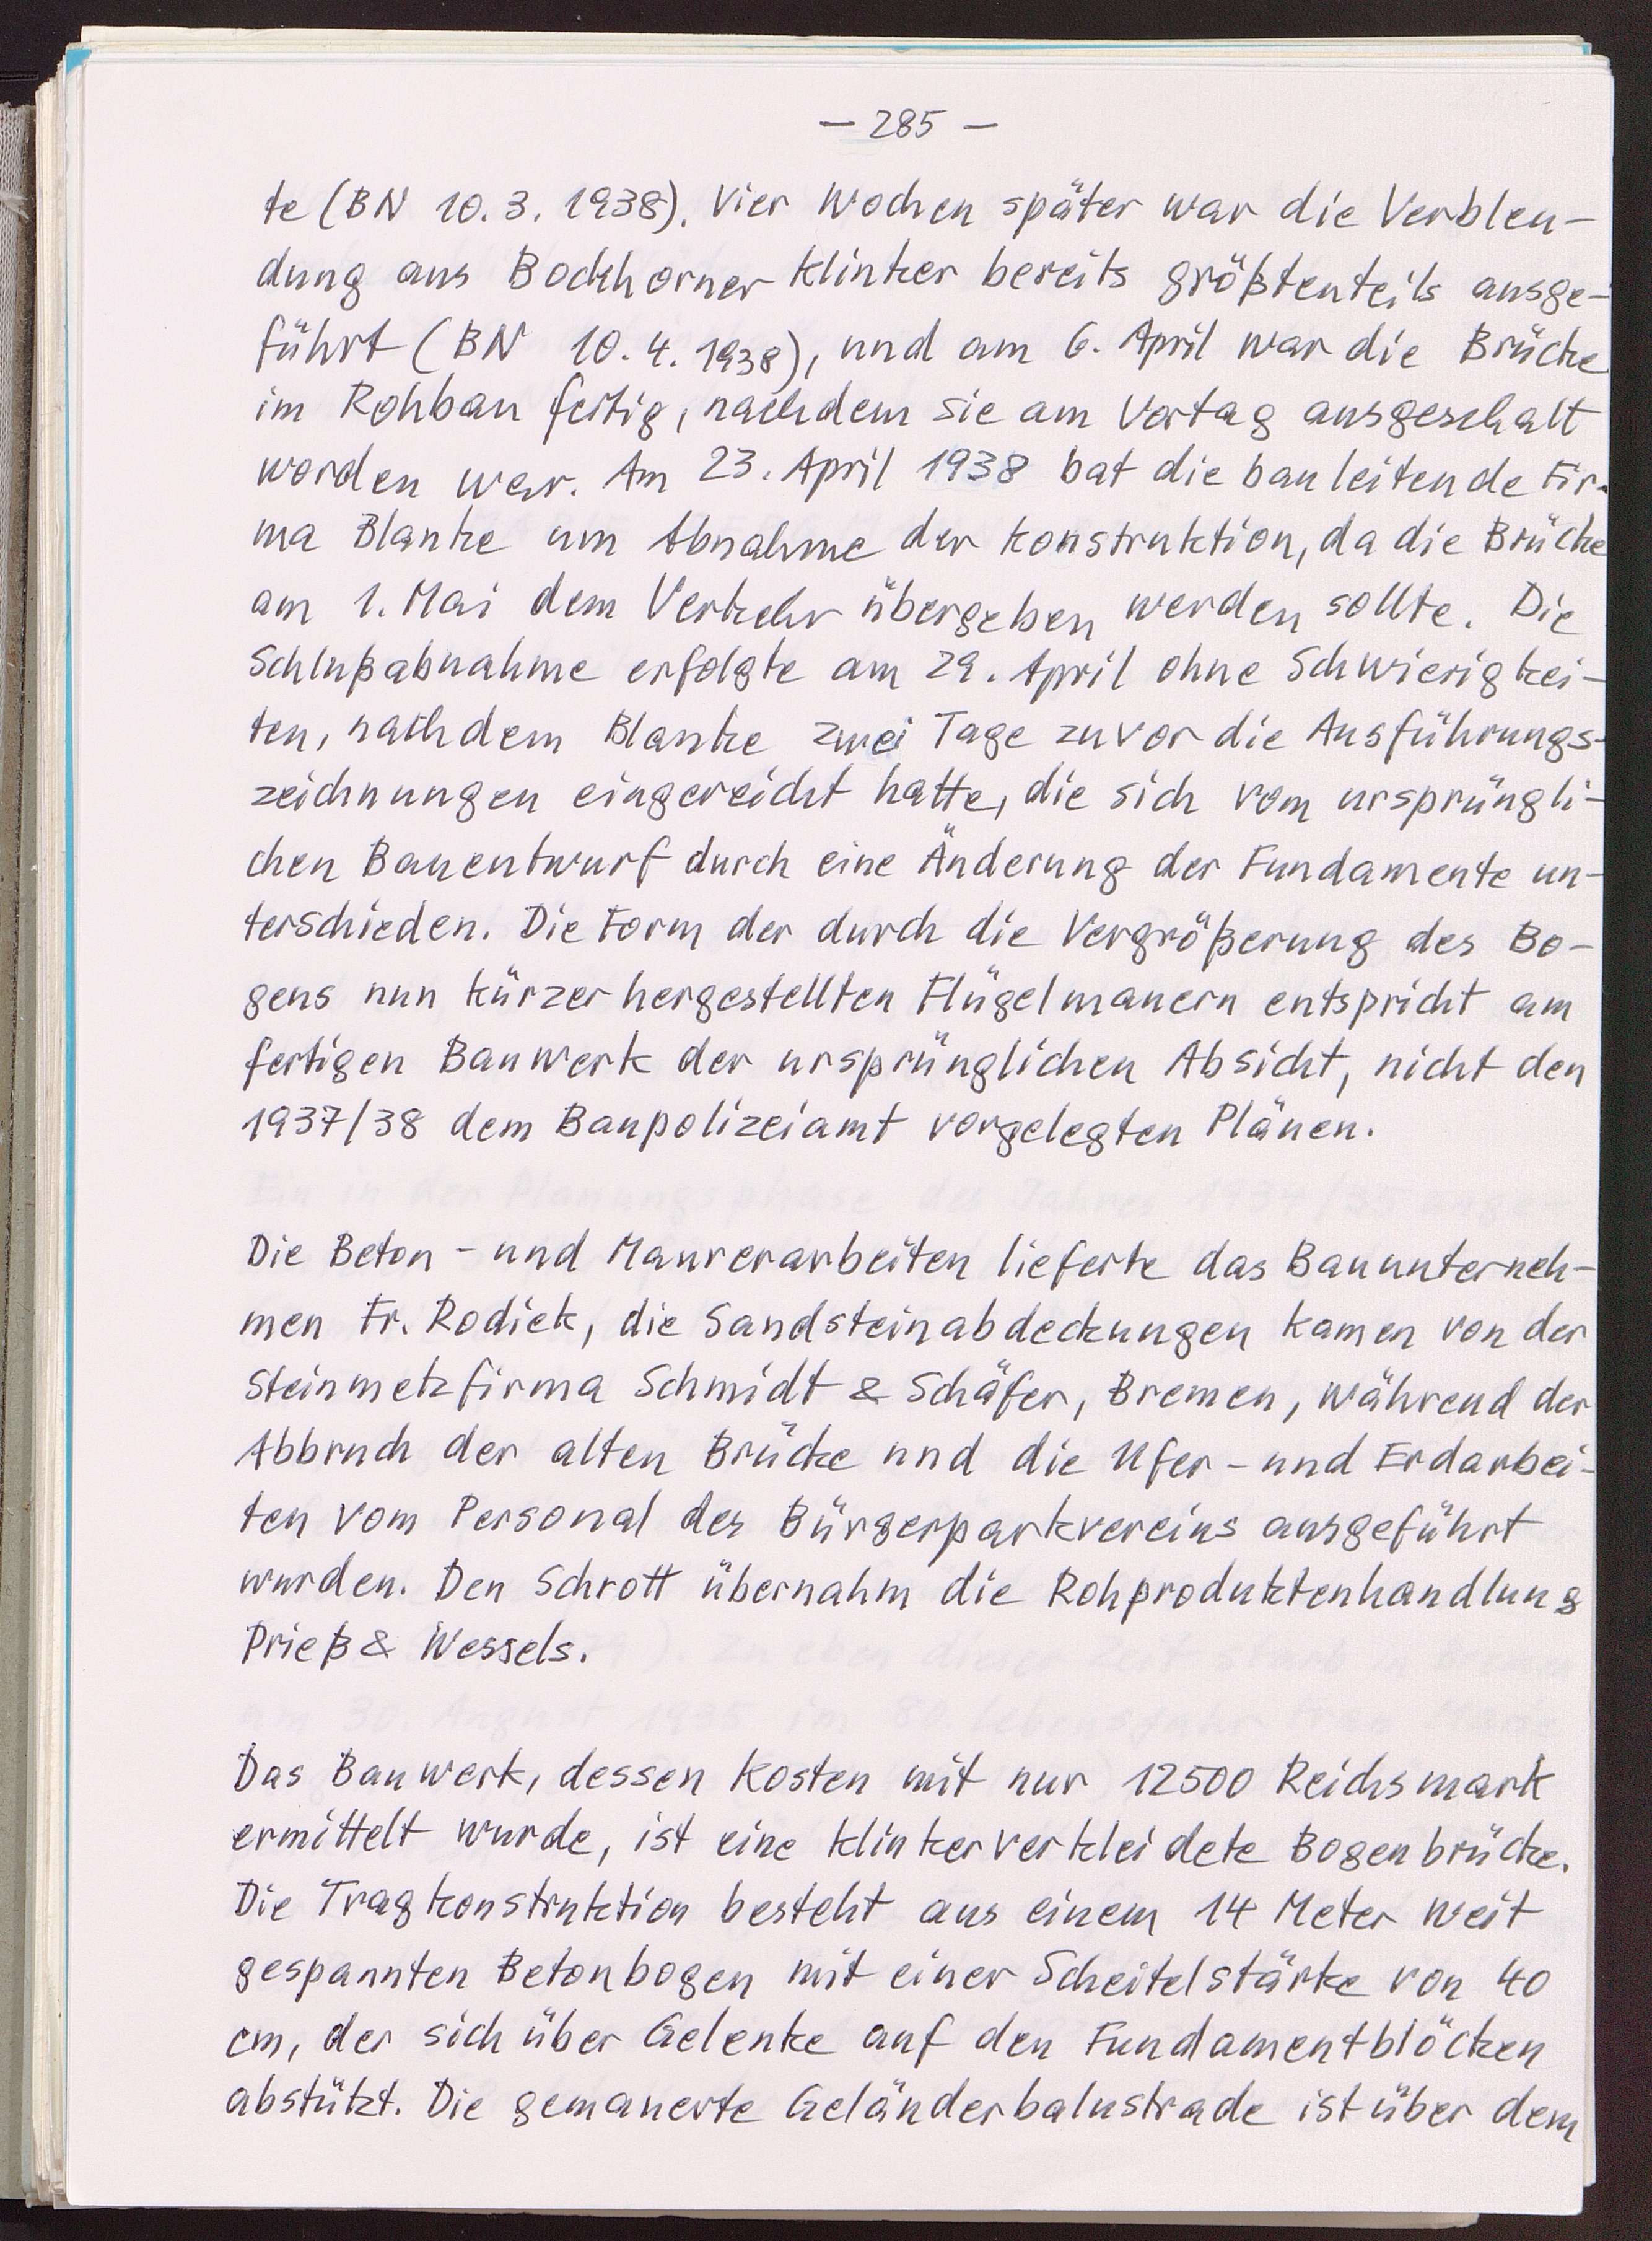 — 285 —
te (BN 10.3.1938). Vier Wochen später war die Verblen-
dung aus Bockhorner Klinker bereits größtenteils ausge-
führt (BN 10.4.1938), und am 6. April war die Brücke
im Rohbau fertig, nachdem sie am Vortag ausgeschalt
worden war. Am 23. April 1938 bat die bauleitende Fir-
ma Blanke um Abnahme der Konstruktion, da die Brücke
am 1. Mai dem Verkehr übergeben werden sollte. Die
Schlußabnahme erfolgte am 29. April ohne Schwierigkei-
ten, nachdem Blanke zwei Tage zuvor die Ausführungs-
zeichnungen eingereicht hatte, die sich vom ursprüngli-
chen Bauentwurf durch eine Änderung der Fundamente un-
terschieden. Die Form der durch die Vergrößerung des Bo-
gens nun kürzer hergestellten Flügelmauern entspricht am
fertigen Bauwerk der ursprünglichen Absicht, nicht den
1937/38 dem Baupolizeiamt vorgelegten Plänen.
Die Beton- und Maurerarbeiten lieferte das Bauunterneh-
men Fr. Rodiek, die Sandsteinabdeckungen kamen von der
Steinmetzfirma Schmidt & Schäfer, Bremen, während der
Abbruch der alten Brücke und die Ufer- und Erdarbei-
ten vom Personal des Bürgerparkvereins ausgeführt
wurden. Den Schrott übernahm die Rohproduktenhandlung
Prieß & Wessels.
Das Bauwerk, dessen Kosten mit nur 12500 Reichsmark
ermittelt wurde, ist eine klinkerverkleidete Bogenbrücke.
Die Tragkonstruktion besteht aus einem 14 Meter weit
gespannten Betonbogen mit einer Scheitelstärke von 40
cm, der sich über Gelenke auf den Fundamentblöcken
abstützt. Die gemauerte Geländerbalustrade ist über dem